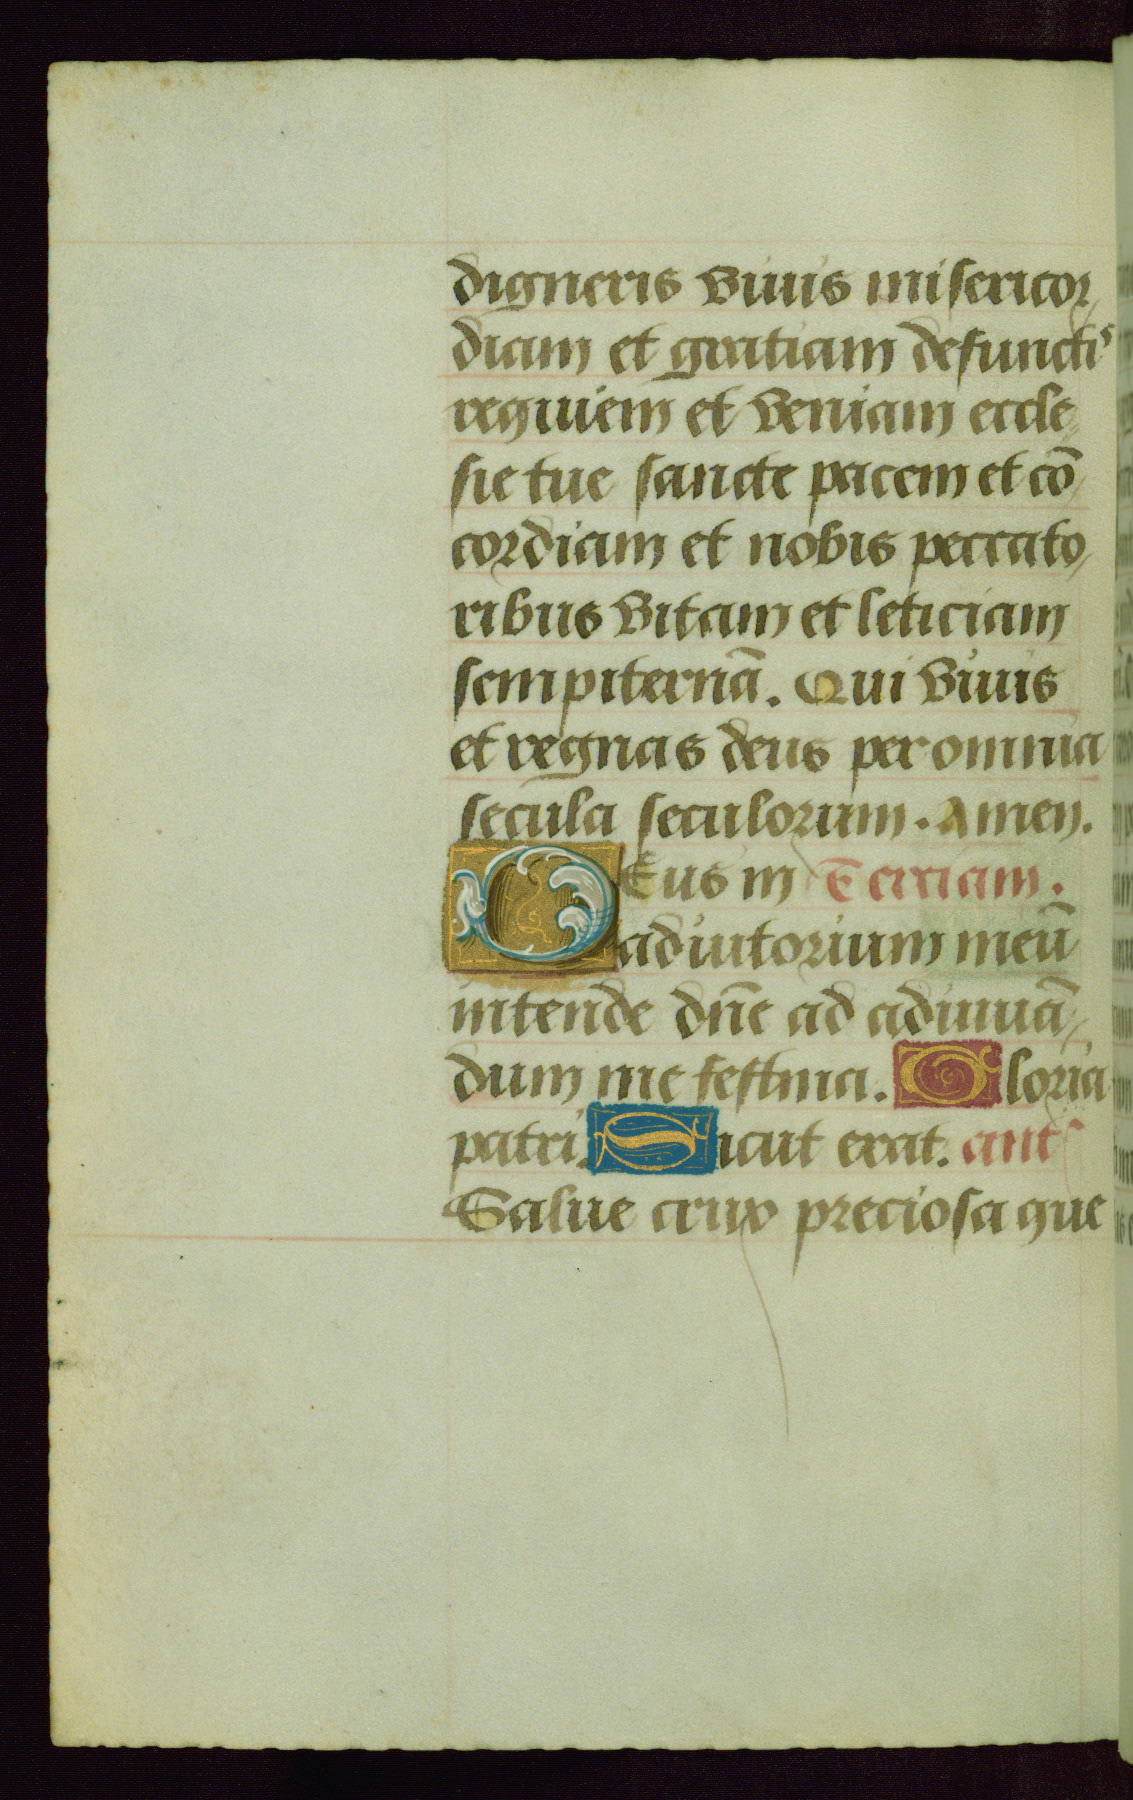 digneris viuis misericor
diam et gratiam defunctis
requiem et veniam eccle
sie tue sancte pacem et cō
cordiam et nobis peccato
ribus vitam et leticiam
sempiternā. Qui viuis
et regnas deus per omnia
secula seculorum. Amen.
DEus in Terciam.
adiutorium meū
intende dn̄e ad adiuuā
dum me festina. Gloria
patri. Sicut erat. ant
Salue crux preciosa que